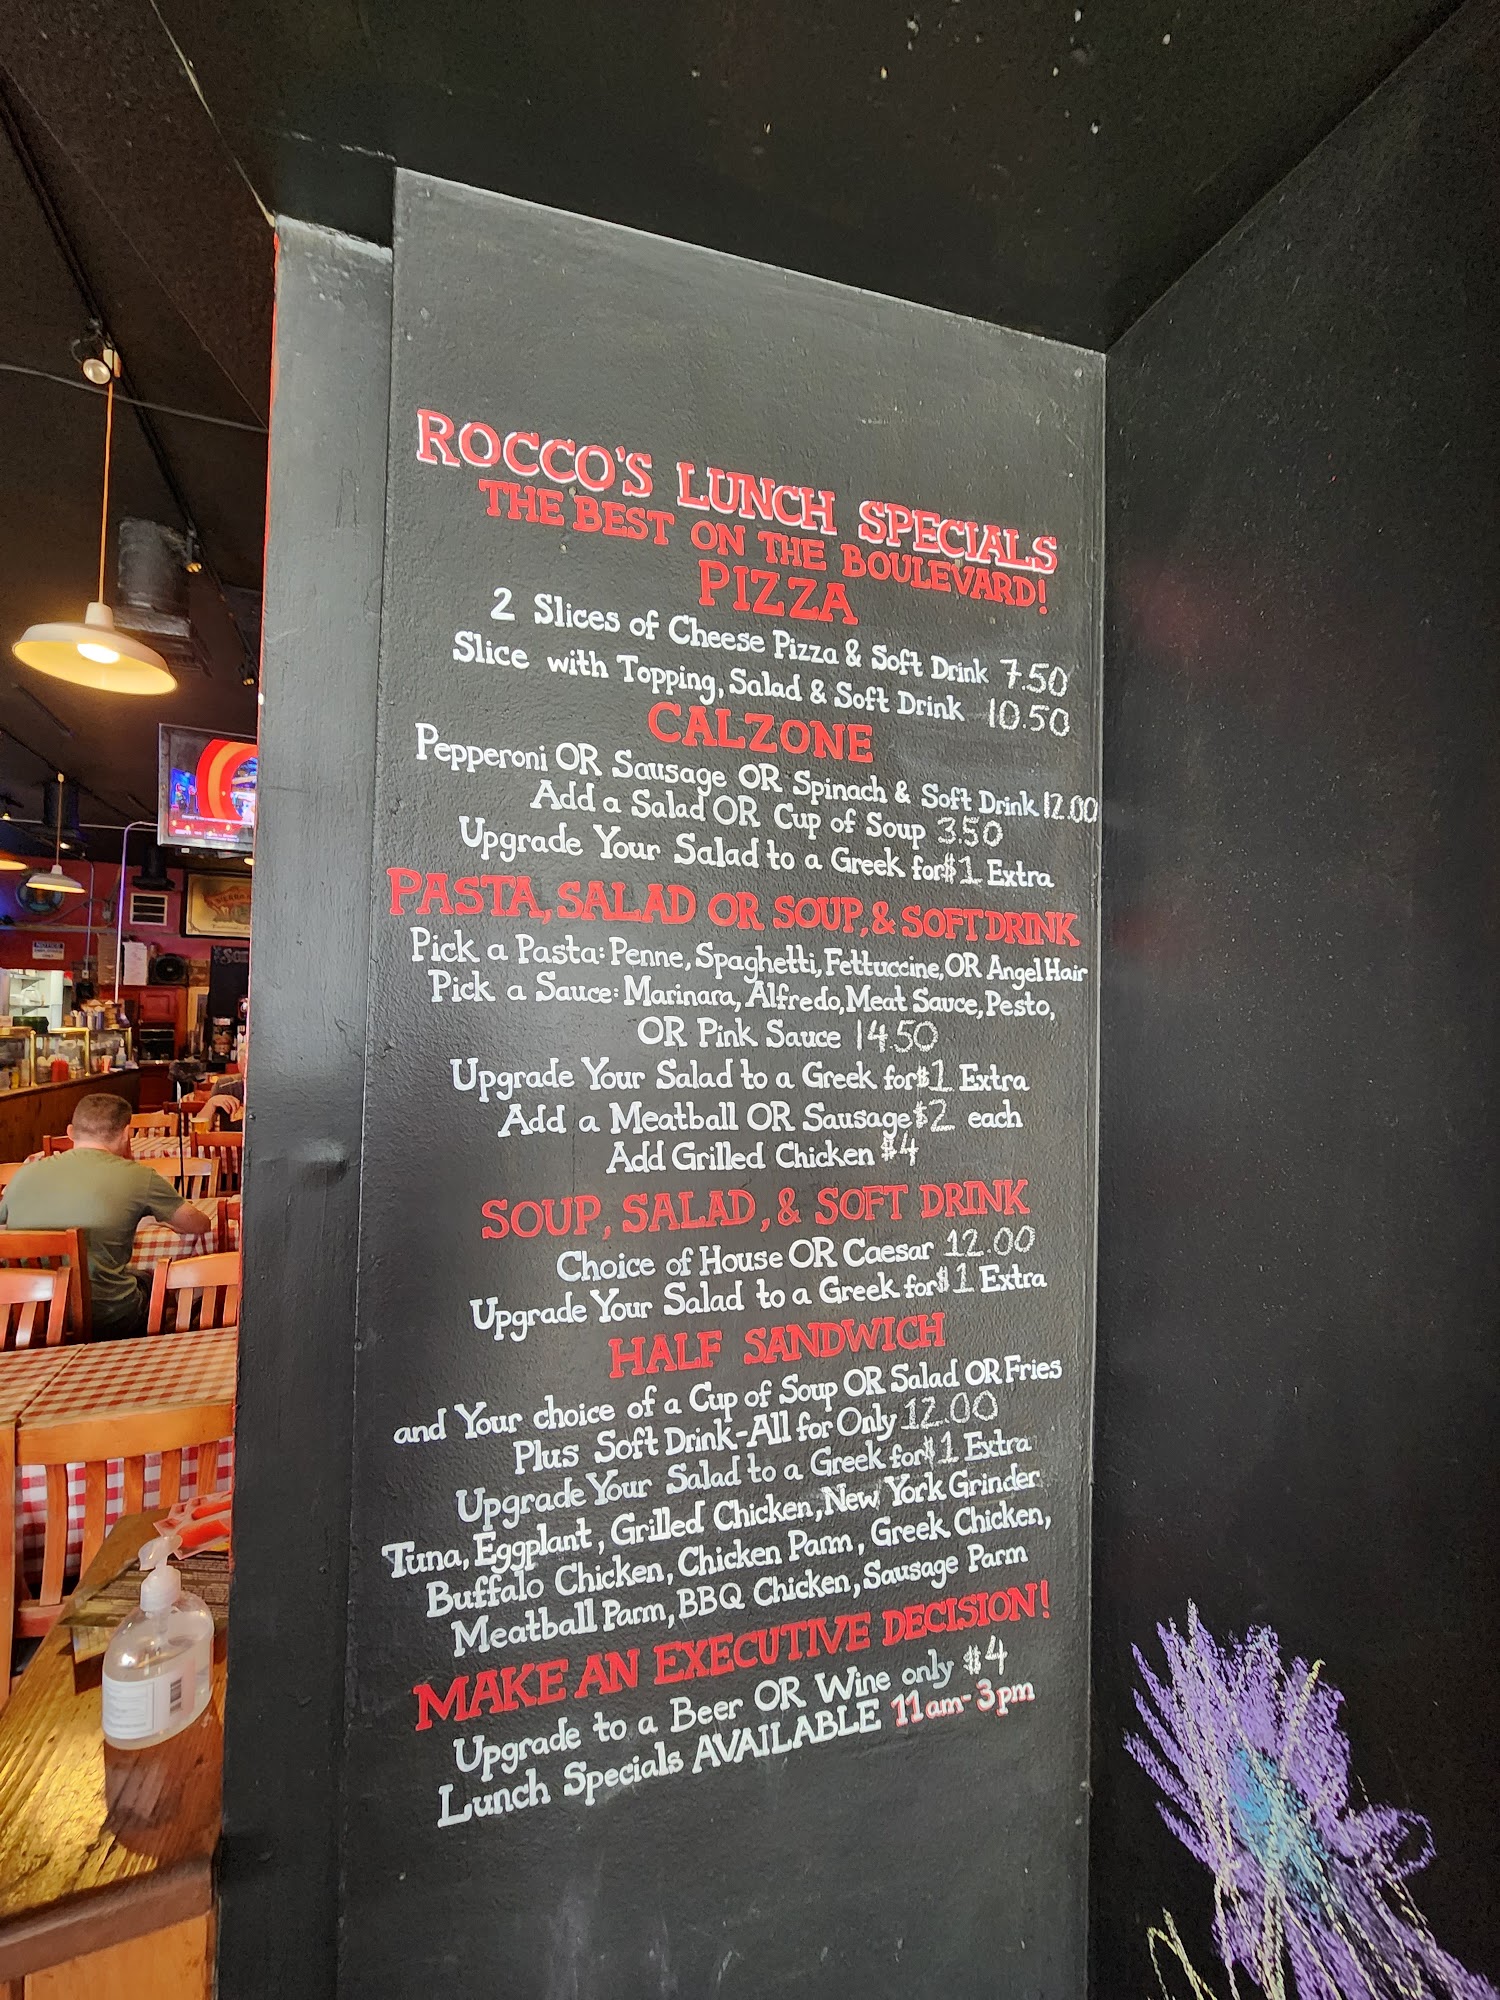 ROCCO'S LUNCH SPECIALS
THE BEST ON THE BOULEVARD!
PIZZA
2 Slices of Cheese Pizza & Soft Drink 7.50
Slice with Topping, Salad & Soft Drink 10.50
CALZONE
Pepperoni OR Sausage OR Spinach & Soft Drink 12.00
Add a Salad OR Cup of Soup 3.50
Upgrade Your Salad to a Greek for $1 Extra
PASTA, SALAD OR SOUP, & SOFT DRINK
Pick a Pasta: Penne, Spaghetti, Fettuccine, OR Angel Hair
Pick a Sauce: Marinara, Alfredo, Meat Sauce, Pesto,
OR Pink Sauce 14.50
Upgrade Your Salad to a Greek for $1 Extra
Add a Meatball OR Sausage $2 each
Add Grilled Chicken $4
SOUP, SALAD, & SOFT DRINK
Choice of House OR Caesar 12.00
Upgrade Your Salad to a Greek for $1 Extra
HALF SANDWICH
and Your choice of a Cup of Soup OR Salad OR Fries
Plus Soft Drink-All for Only 12.00
Upgrade Your Salad to a Greek for $1 Extra
Tuna, Eggplant, Grilled Chicken, New York Grinder
Buffalo Chicken, Chicken Parm, Greek Chicken,
Meatball Parm, BBQ Chicken, Sausage Parm
MAKE AN EXECUTIVE DECISION!
Upgrade to a Beer OR Wine only $4
Lunch Specials AVAILABLE 11am-3pm
NOTICE